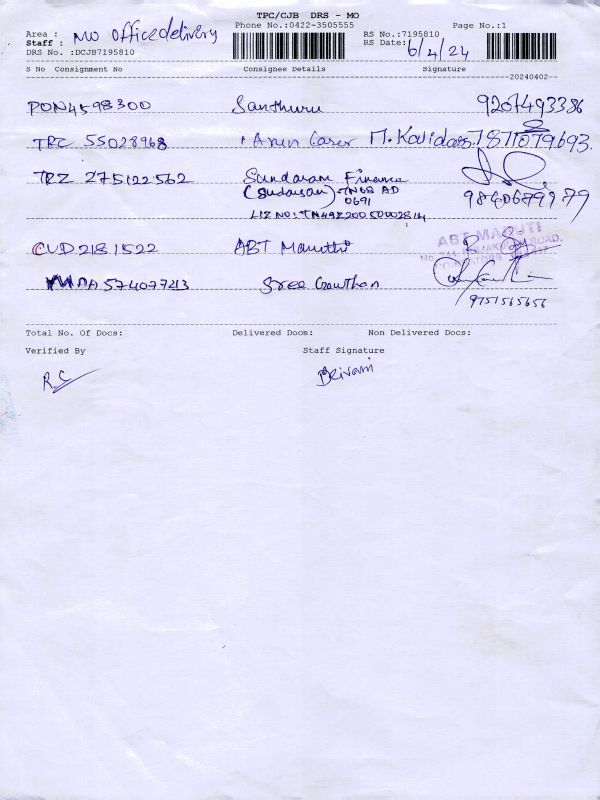 TPC/CJB DRS - MO
Phone No.:0422-3505555
Page No.:1
Area : MO office delivery
RS No.:7195810
Staff :
RS Date: 6/4/24
DRS No. :DCJB7195810
S No Consignment No Consignee Details Signature
20240402
PON4598300 Santhuru 9207493386
TRC 55028968 Arun Caser M. Kavidass 7871079693.
TRZ 275122562 Sundaram Finance
(Sudarsan) TN68 AD 9840679979
0691
LIZ NO: TN49Z20050002814
CUD2181522 ABT Maruthi ABT MARUTI
574077213 Sree Gowthan
9751565656
Total No. Of Docs: Delivered Docs: Non Delivered Docs:
Verified By Staff Signature